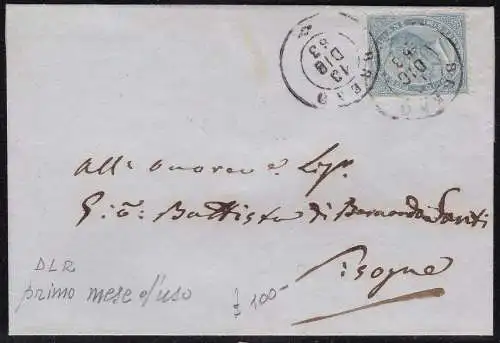 BRENO
13
DIC
63
BRENO
DIC
63
All' Onorevo e Sigr
Gio: Battista di Bernardo Santi
Pisogne
DLR
primo mese d'uso
£ 100-